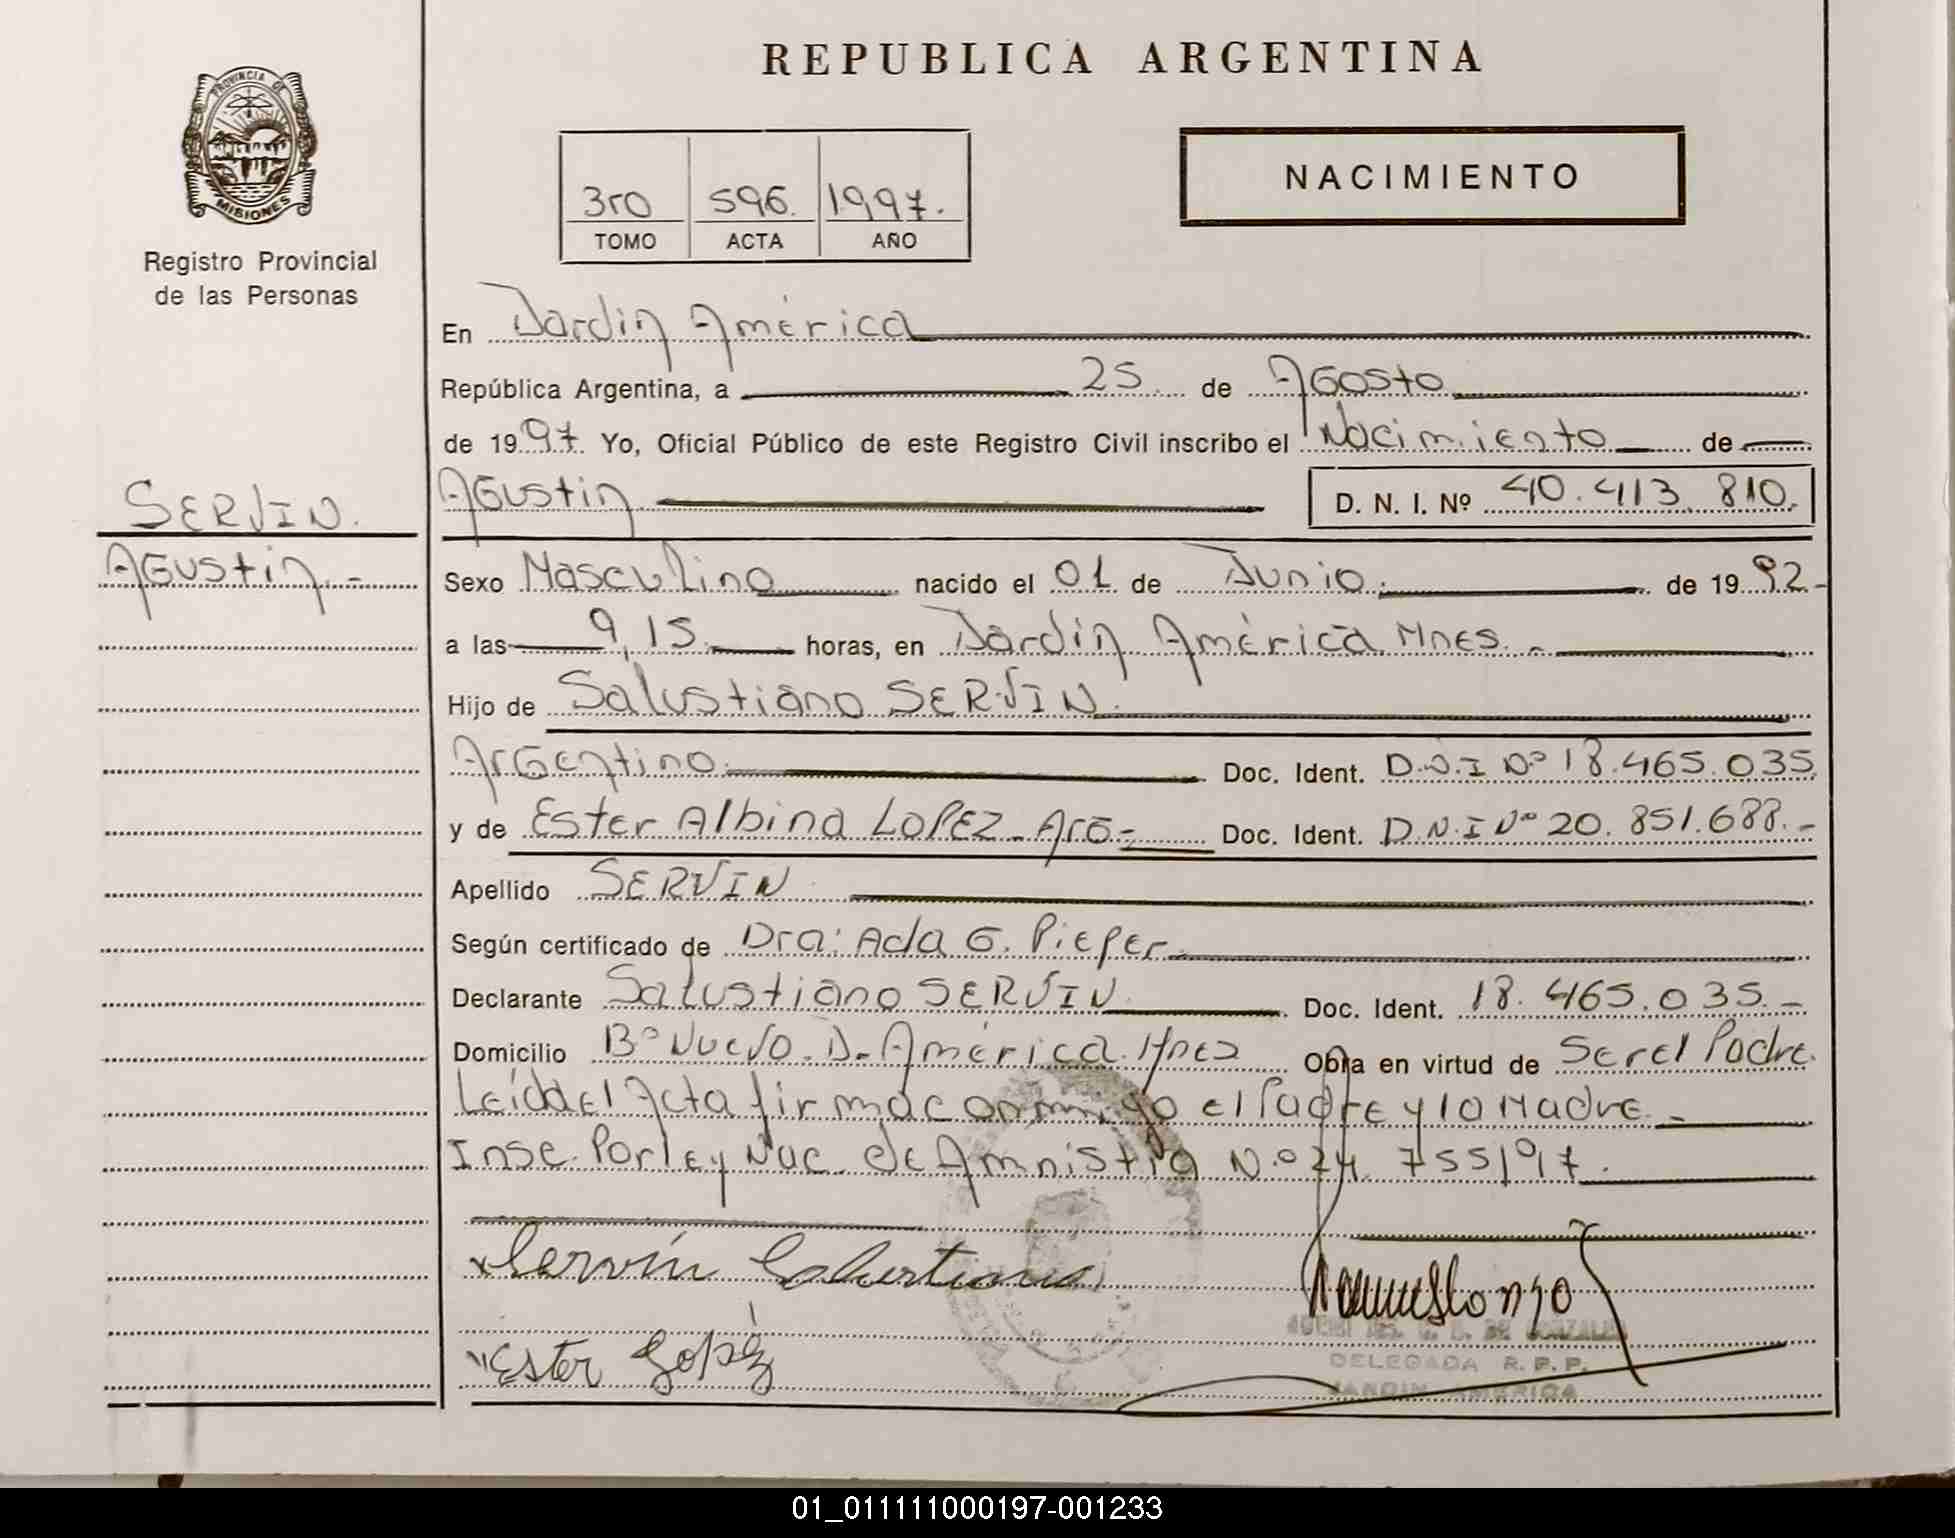 REPUBLICA ARGENTINA
PROVINCIA DE
MISIONES
Registro Provincial
de las Personas
3ro 596. 1997.
TOMO ACTA AÑO
NACIMIENTO
En Jardin América
República Argentina, a 25 de Agosto
de 1997. Yo, Oficial Público de este Registro Civil inscribo el Nacimiento de
SERVIN.
Agustin.-
Agustin D. N. I. Nº 40.413.810.
Sexo Masculino nacido el 01 de Junio. de 1992-
a las 9,15 horas, en Jardin América Mnes.-
Hijo de Salustiano SERVIN.
Argentino Doc. Ident. D.N.I Nº 18.465.035
y de Ester Albina LOPEZ - Arg.- Doc. Ident. D.N.I Nº 20.851.688.-
Apellido SERVIN
Según certificado de Dra: Ada G. Pieper
Declarante Salustiano SERVIN Doc. Ident. 18.465.035.-
Domicilio Bº Nuevo. J. América. Mnes Obra en virtud de Ser el Padre
Leída el Acta firma conmigo el Padre y la Madre.-
Insc. Por ley Nac. de Amnistia N.º 24.755/97.
Servín
Ester Lopéz
DE GONZALEZ
DELEGADA R.P.P.
JARDIN AMERICA
01_011111000197-001233